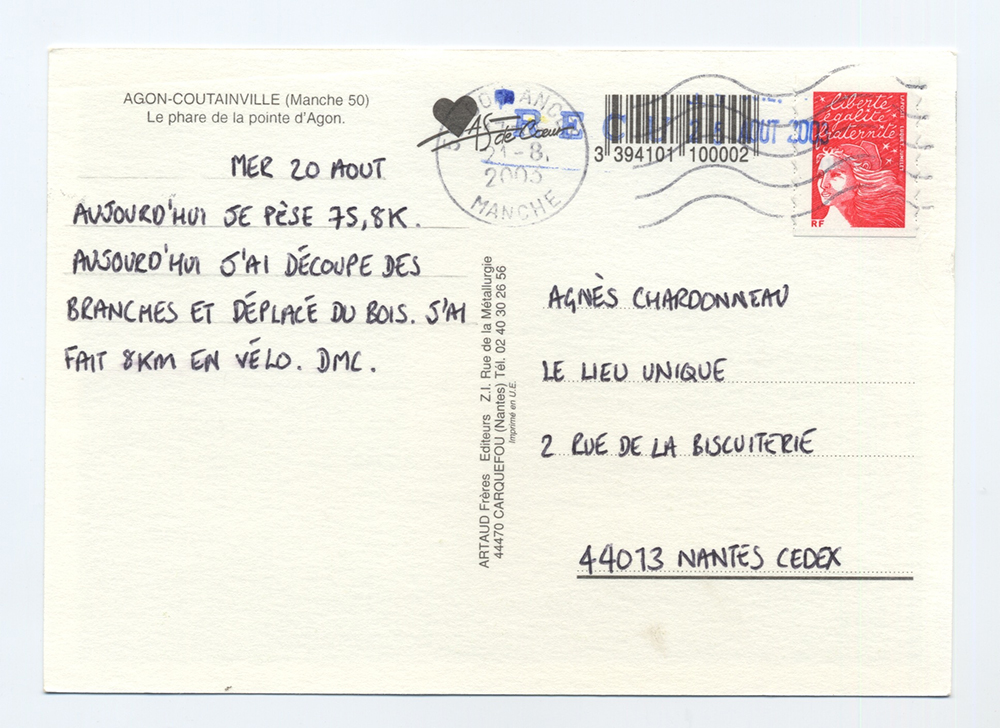 AGON-COUTAINVILLE (Manche 50)
Le phare de la pointe d'Agon.
MER 20 AOUT
AUJOURD'HUI JE PÈSE 75,8K.
AUJOURD'HUI J'AI DÉCOUPE DES
BRANCHES ET DÉPLACÉ DU BOIS. J'AI
FAIT 8KM EN VÉLO. DMC.
ARTAUD Frères Editeurs Z.I. Rue de la Métallurgie
44470 CARQUEFOU (Nantes) Tél. 02 40 30 26 56
Imprimé en U.E.
AS de Cœur
21-8.
MANCHE
3 394101 100002
AOUT
liberté
égalité
fraternité
RF
AGNÈS CHARDONNEAU
LE LIEU UNIQUE
2 RUE DE LA BISCUITERIE
44013 NANTES CEDEX